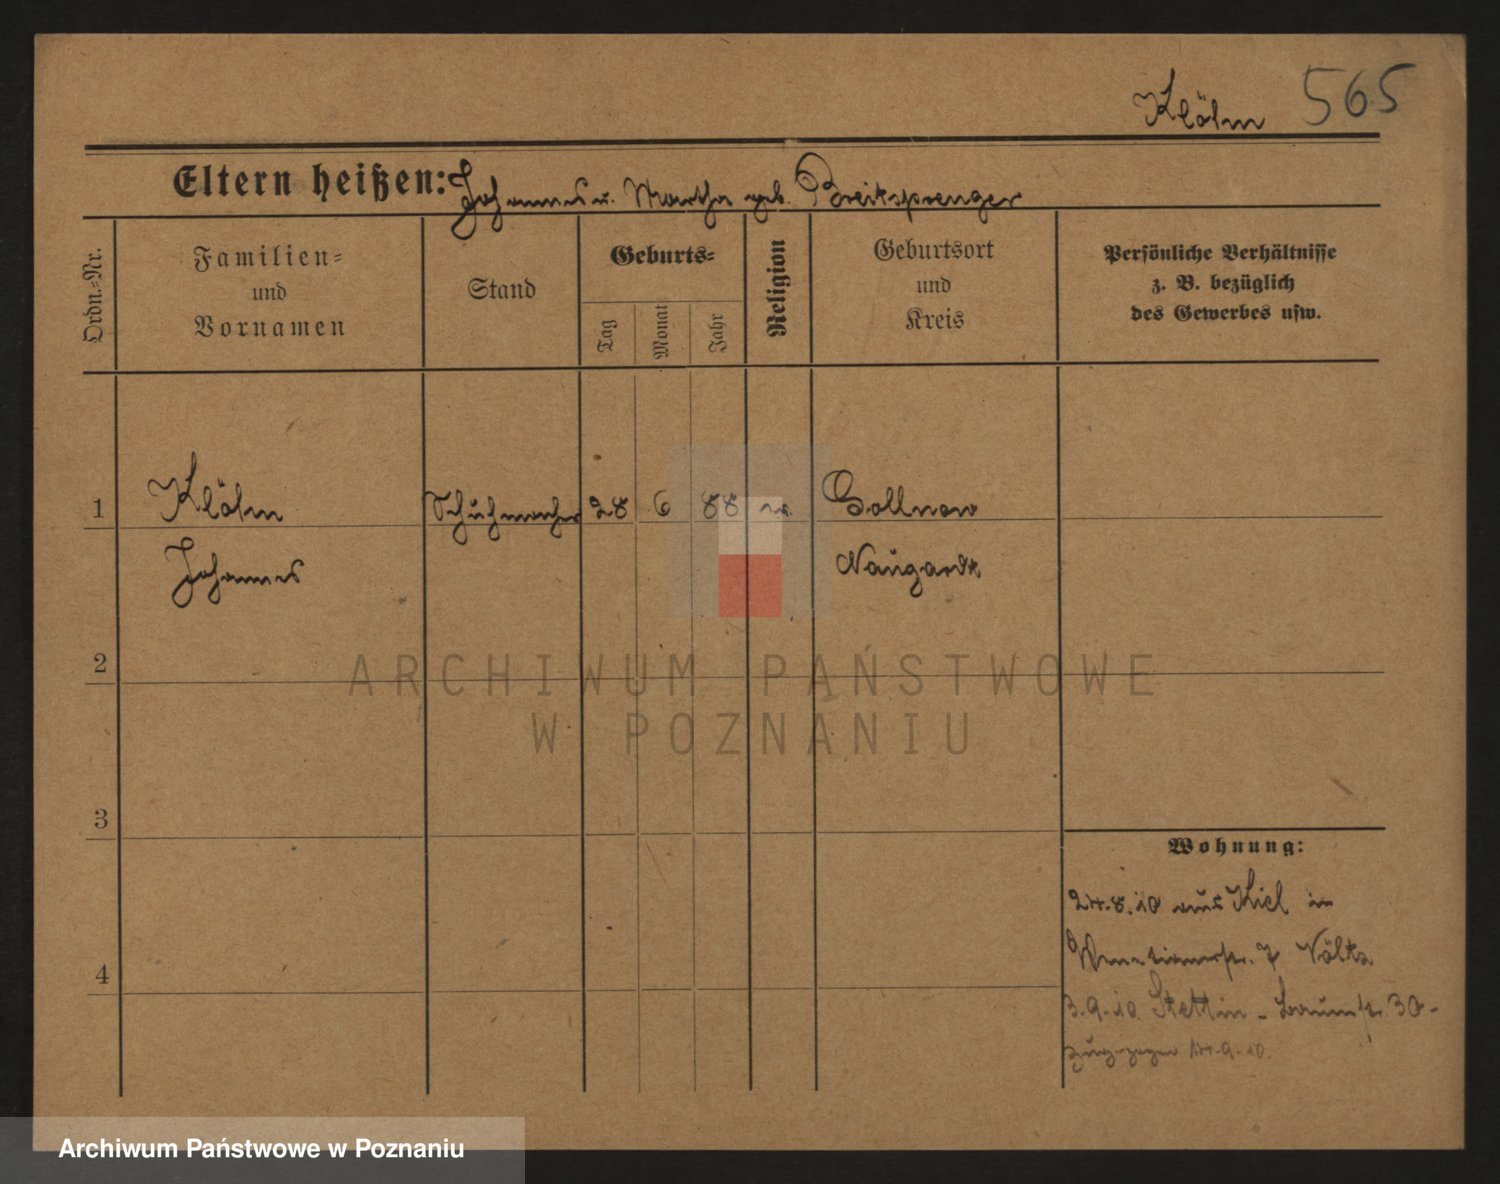 Klöhn 565
Eltern heißen: Johannes u. Martha geb. Breitsprenger
Ordn.-Nr.
Familien-
und
Vornamen
Stand
Geburts-
Tag
Monat
Jahr
Religion
Geburtsort
und
Kreis
Persönliche Verhältnisse
z. B. bezüglich
des Gewerbes usw.
1 Klöhn Schuhmacher 28 6 88 ev. Gollnow
Johannes Naugardt
2
3
4
Wohnung:
24.8.10 aus Kiel in
7
3.9.10 Stettin - 30-
zugezogen 14.9.10.
ARCHIWUM PAŃSTWOWE
W POZNANIU
Archiwum Państwowe w Poznaniu